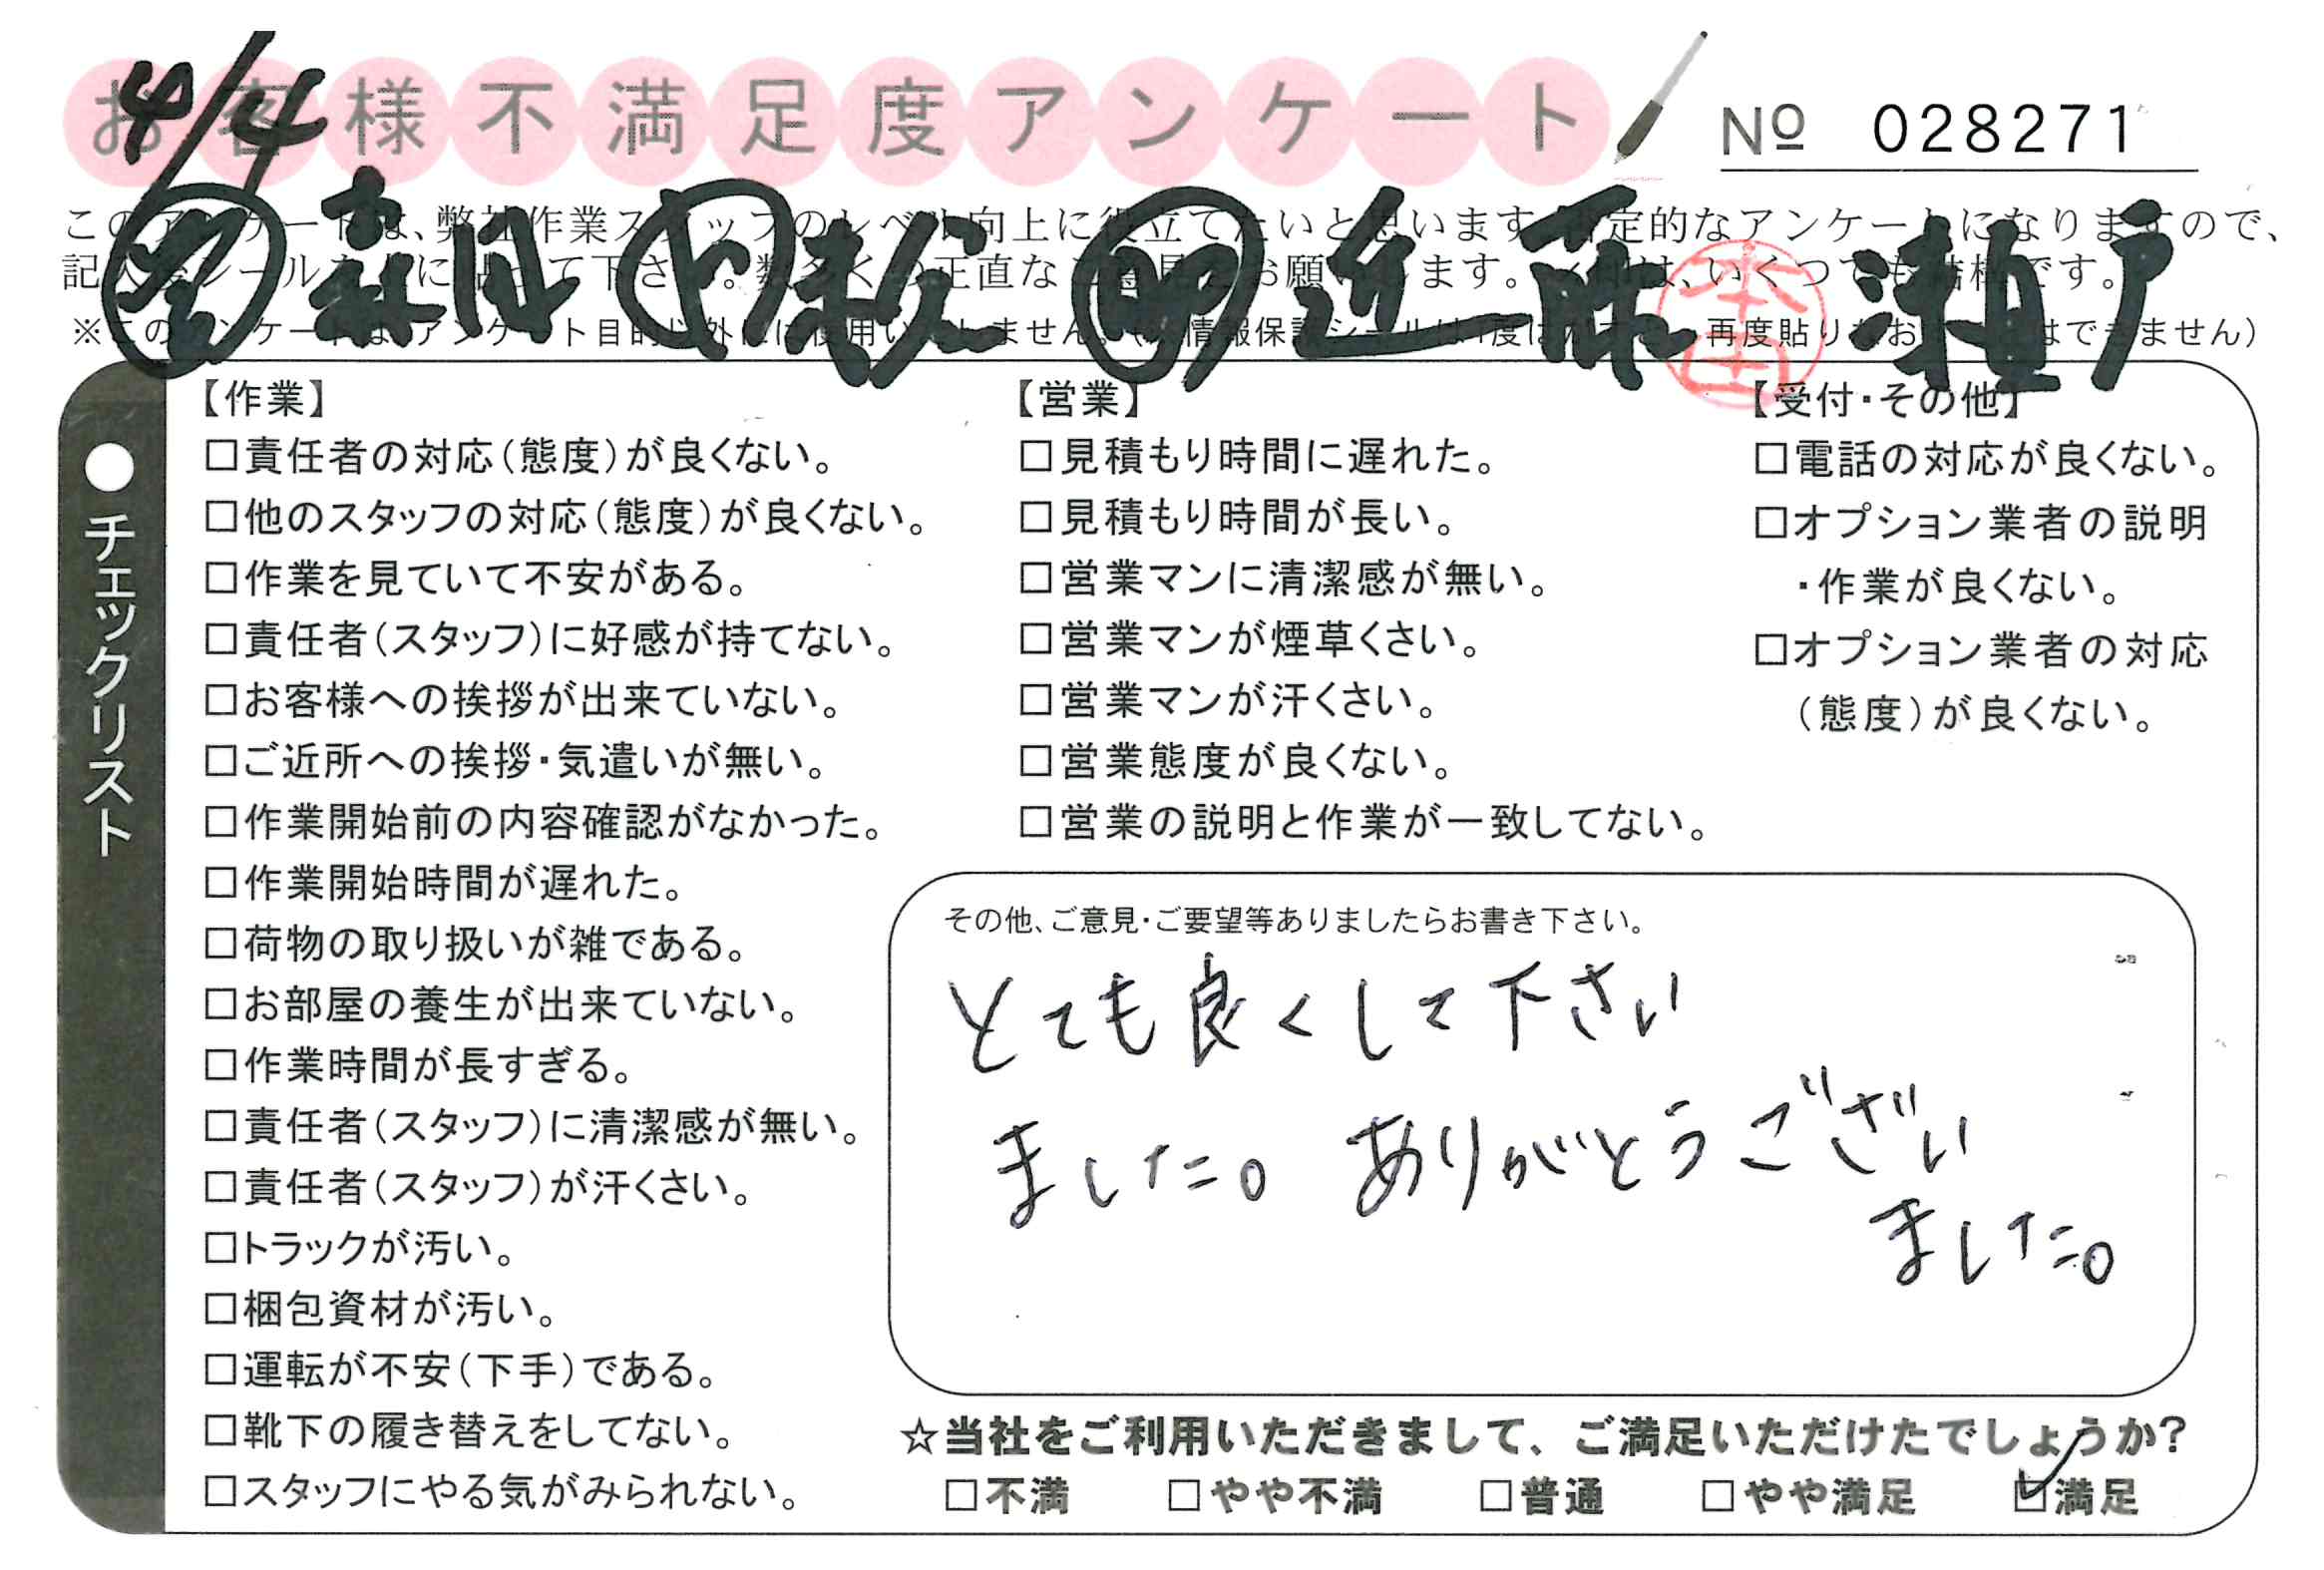 お客様不満足度アンケート
4/4
№ 028271
このアンケートは、弊社作業スタッフのレベル向上に役立てたいと思います。否定的なアンケートになりますので、
記入後シールを上に貼って下さい。数多くの正直なご意見をお願いします。
※このアンケートは、アンケート目的以外には使用いたしません。(個人情報保護シールは1度は 再度貼りなおすことはできません)
営 森田 内 秋 近藤 瀬戸
本田
●チェックリスト
【作業】
□責任者の対応(態度)が良くない。
□他のスタッフの対応(態度)が良くない。
□作業を見ていて不安がある。
□責任者(スタッフ)に好感が持てない。
□お客様への挨拶が出来ていない。
□ご近所への挨拶・気遣いが無い。
□作業開始前の内容確認がなかった。
□作業開始時間が遅れた。
□荷物の取り扱いが雑である。
□お部屋の養生が出来ていない。
□作業時間が長すぎる。
□責任者(スタッフ)に清潔感が無い。
□責任者(スタッフ)が汗くさい。
□トラックが汚い。
□梱包資材が汚い。
□運転が不安(下手)である。
□靴下の履き替えをしてない。
□スタッフにやる気がみられない。
【営業】
□見積もり時間に遅れた。
□見積もり時間が長い。
□営業マンに清潔感が無い。
□営業マンが煙草くさい。
□営業マンが汗くさい。
□営業態度が良くない。
□営業の説明と作業が一致してない。
【受付・その他】
□電話の対応が良くない。
□オプション業者の説明
・作業が良くない。
□オプション業者の対応
(態度)が良くない。
その他、ご意見・ご要望等ありましたらお書き下さい。
とても良くして下さい
ました。ありがとうござい
ました。
☆当社をご利用いただきまして、ご満足いただけたでしょうか?
□不満 □やや不満 □普通 □やや満足 ☑満足